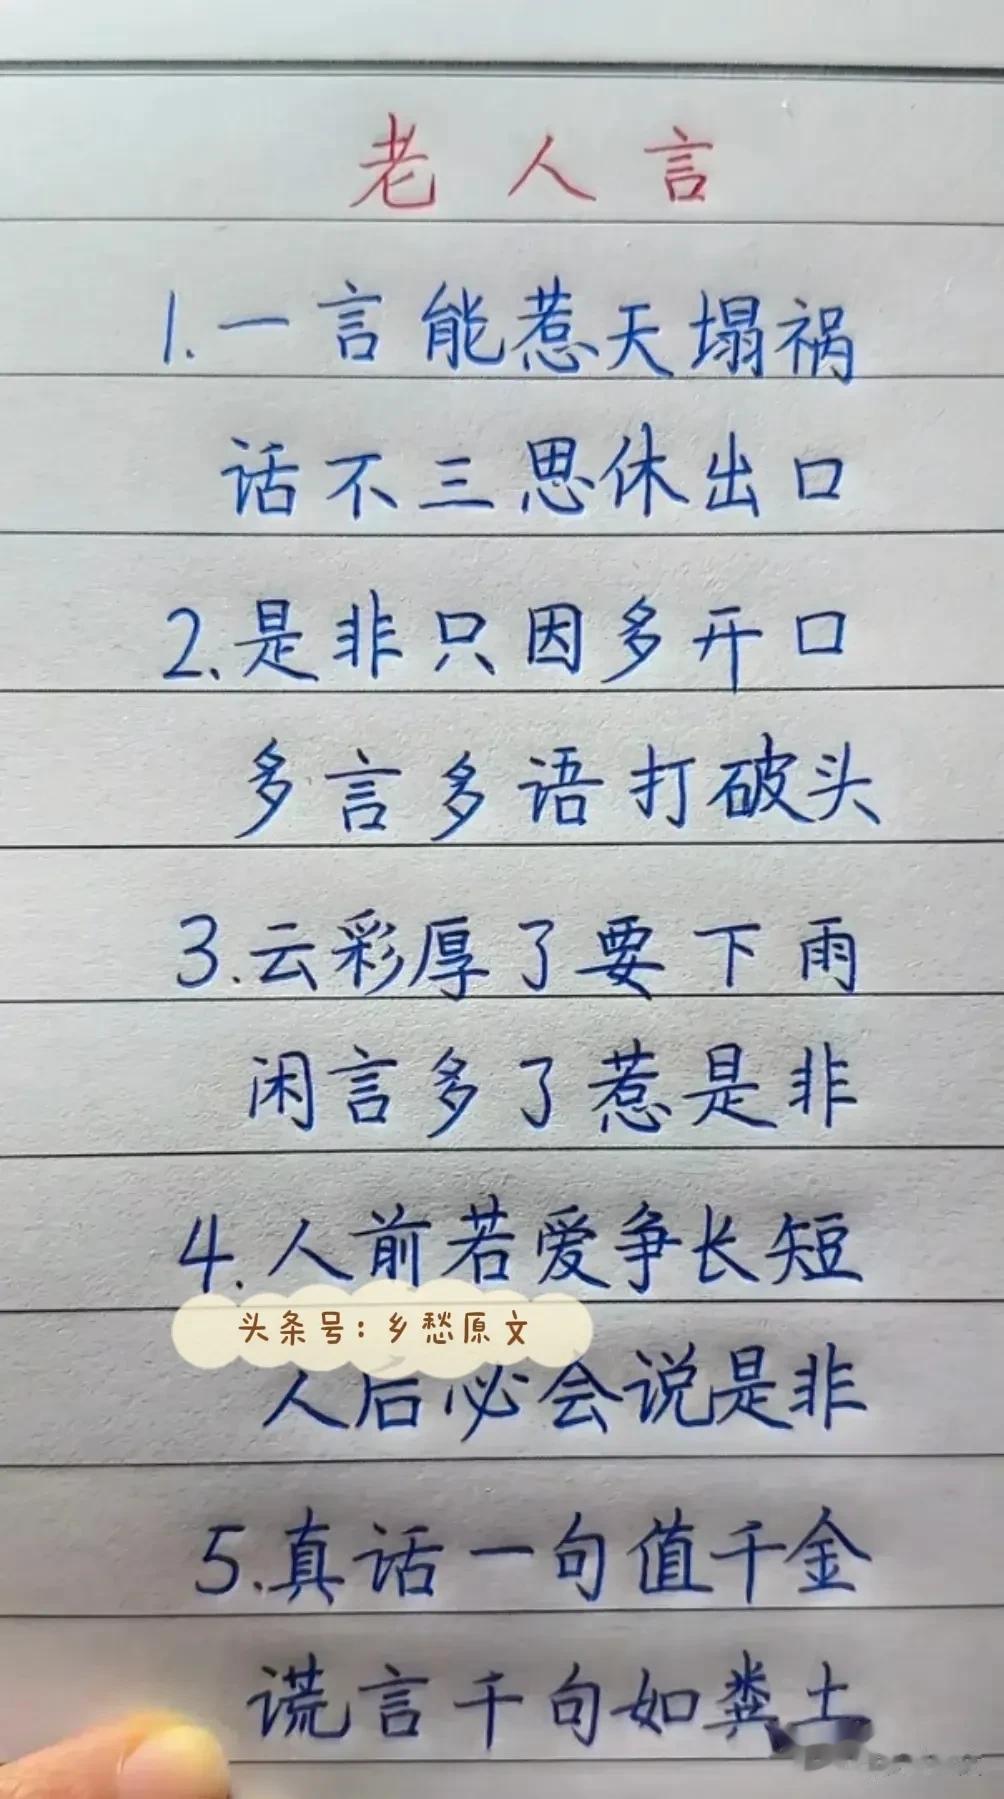 老人言
1.一言能惹天塌祸
话不三思休出口
2.是非只因多开口
多言多语打破头
3.云彩厚了要下雨
闲言多了惹是非
4.人前若爱争长短
头条号:乡愁原文
人后必会说是非
5.真话一句值千金
谎言千句如粪土